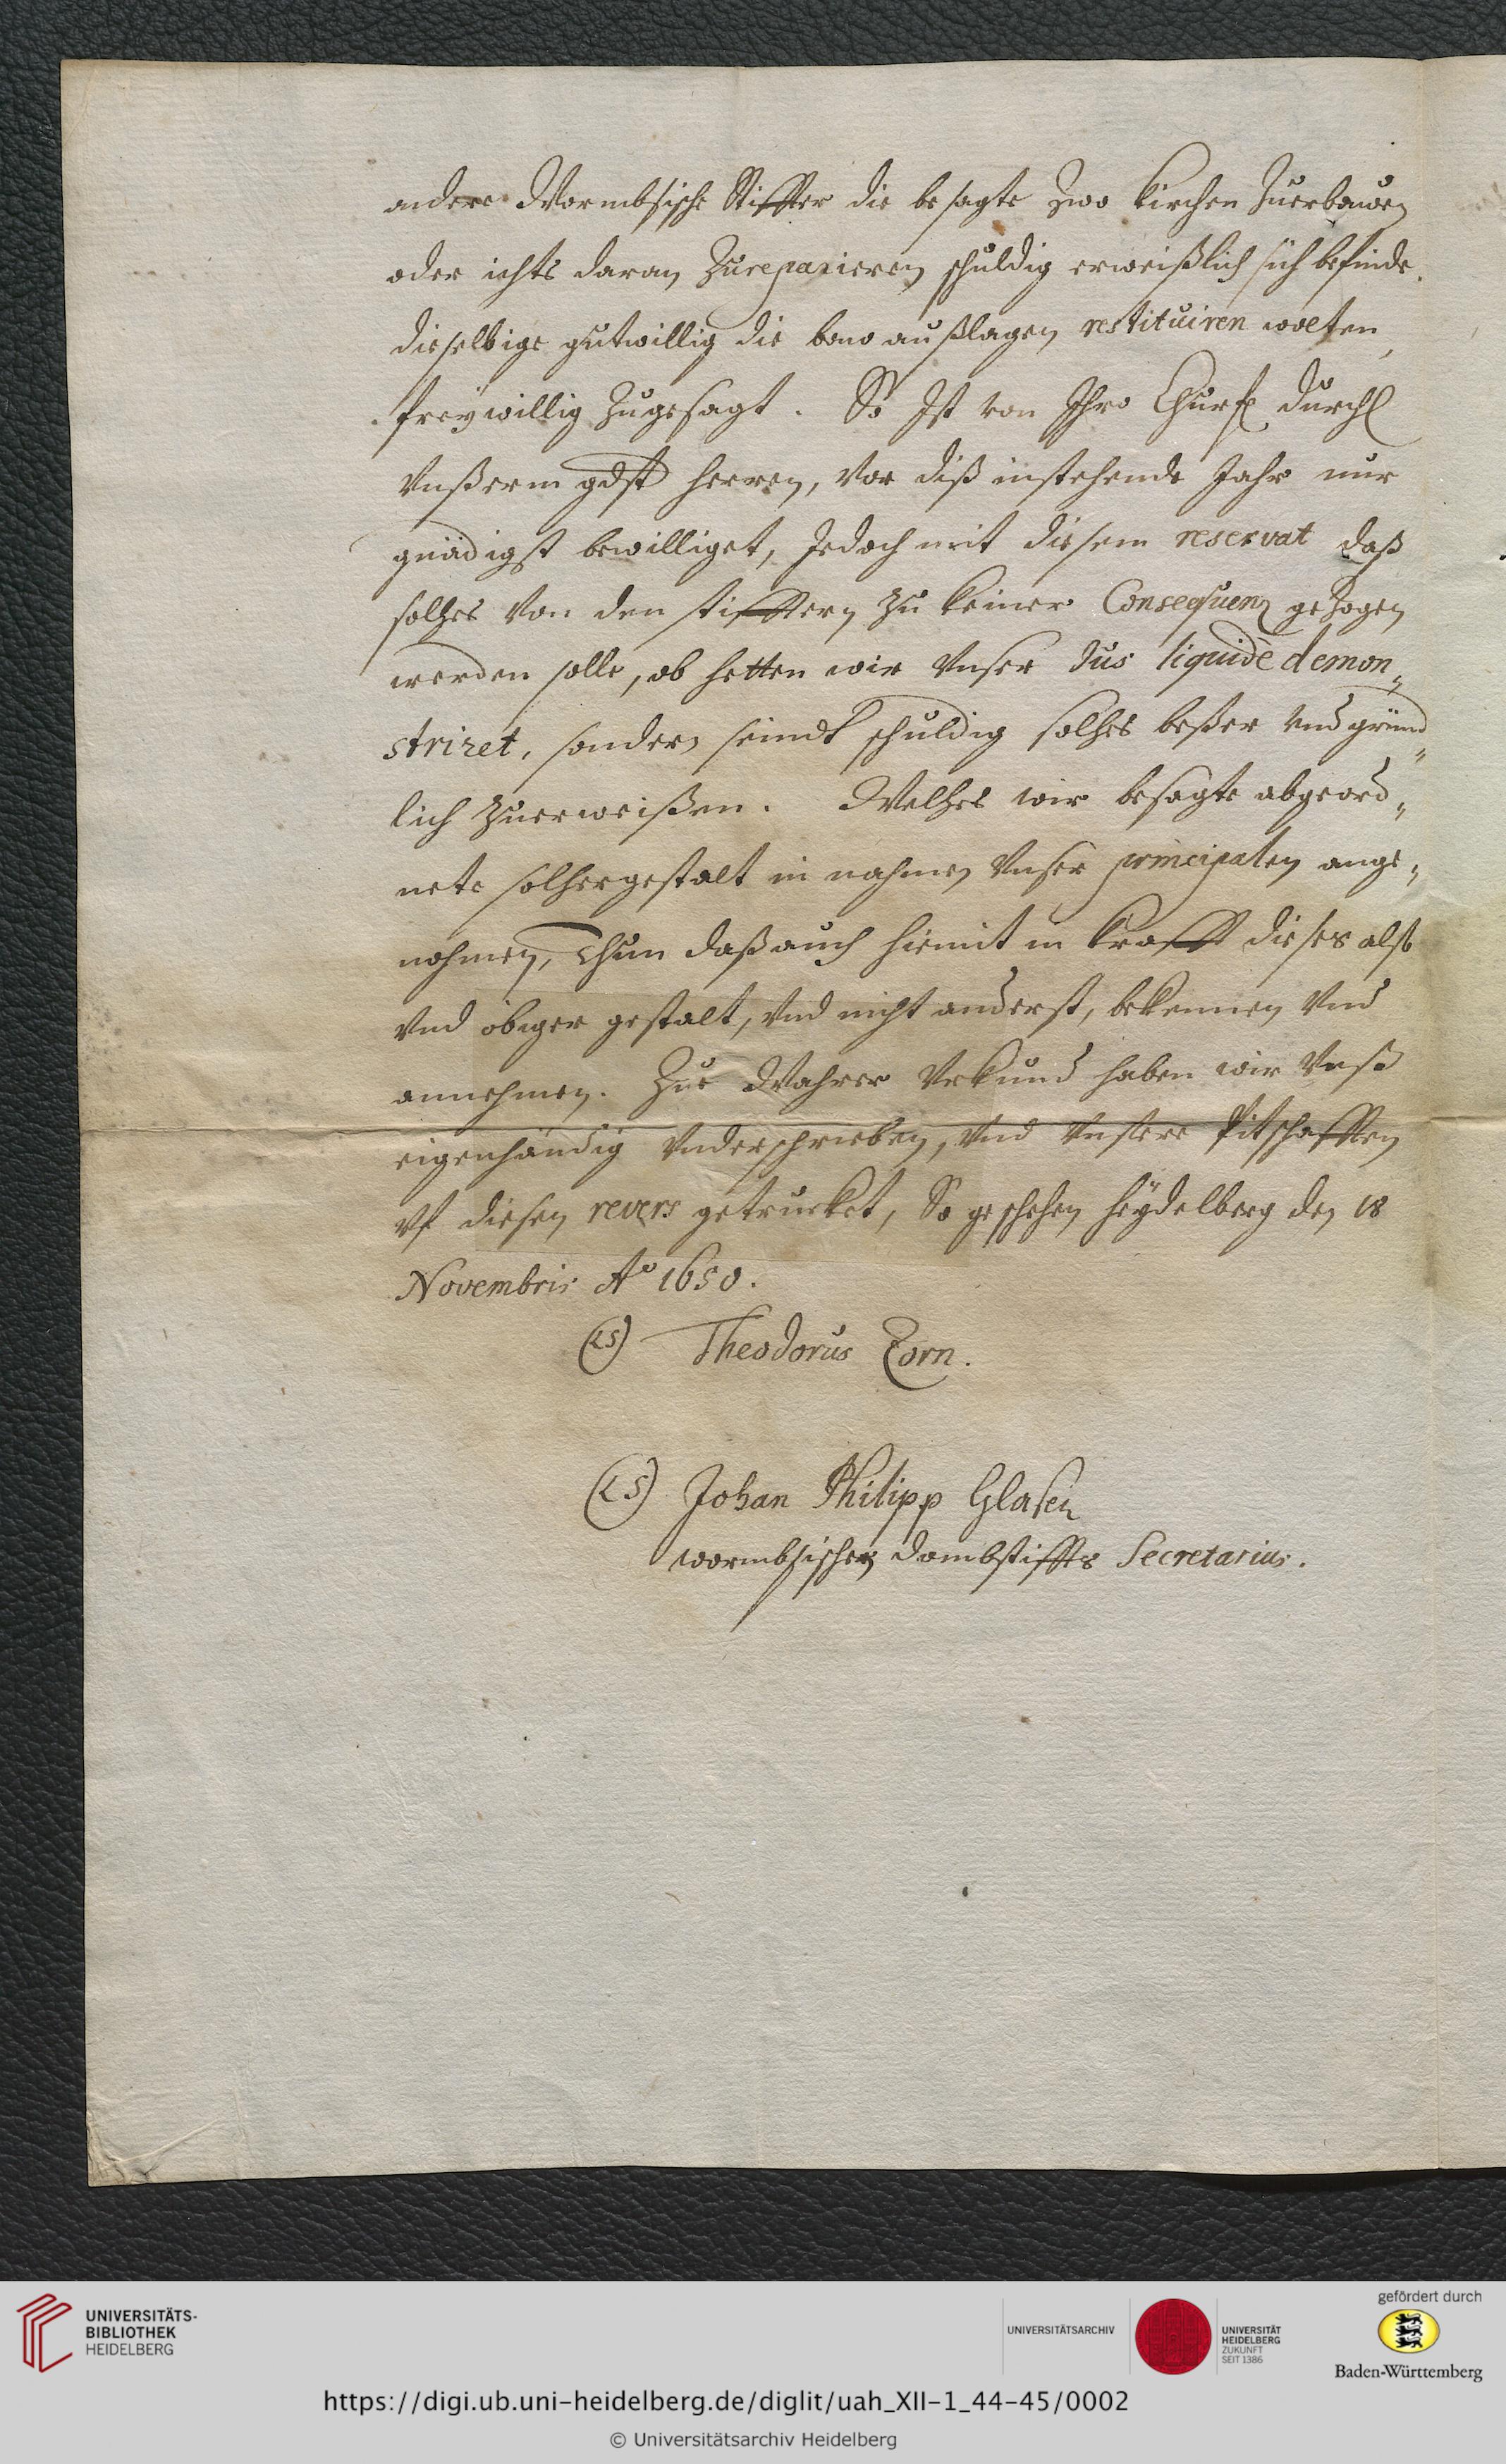 andere Wormbsische Stiffter die besagte zwo Kirchen zuerbawen
oder ichts daran zureparieren schuldig erweißlich sich befinde,
dieselbige gutwillig die baw außlagen restituiren wolten,
freywillig zugesagt. So Ist von Ihro Churf. Durchl
vnßerm gdst herren, vor diß instehende Jahr nur
gnädigst bewilliget, Jedoch mit diesem reservat daß
solches von den stifftern zu keiner Consequenz gezogen
werden solle, ob hetten wir vnser Jus liquidè demon„
striret, sondern seindt schuldig solches beßer vnd gründ„
lich zuerweißen. Welches wir besagte abgeord„
nete solchergestalt in nahmen vnser principalen ange„
nohmen, Thun daß auch hiemit in krafft dieses also
vnd obiger gestalt, vnd nicht anderst, bekennen vnd
annehmen. Zue Wahrer Vrkund haben wir vnß
eigenhändig vnderschrieben, vnd vnsere Pitschafften
vf diesen revers getrucket, So geschehen Heydelberg den 18
Novembris Ao 1650.
(LS) Theodorus Zorn.
(LS) Johan Philipp Glaser
wormbsischen Dombstiffts Secretarius.
UNIVERSITÄTS-
BIBLIOTHEK
HEIDELBERG
UNIVERSITÄTSARCHIV
UNIVERSITÄT
HEIDELBERG
ZUKUNFT
SEIT 1386
gefördert durch
Baden-Württemberg
https://digi.ub.uni-heidelberg.de/diglit/uah_XII-1_44-45/0002
© Universitätsarchiv Heidelberg